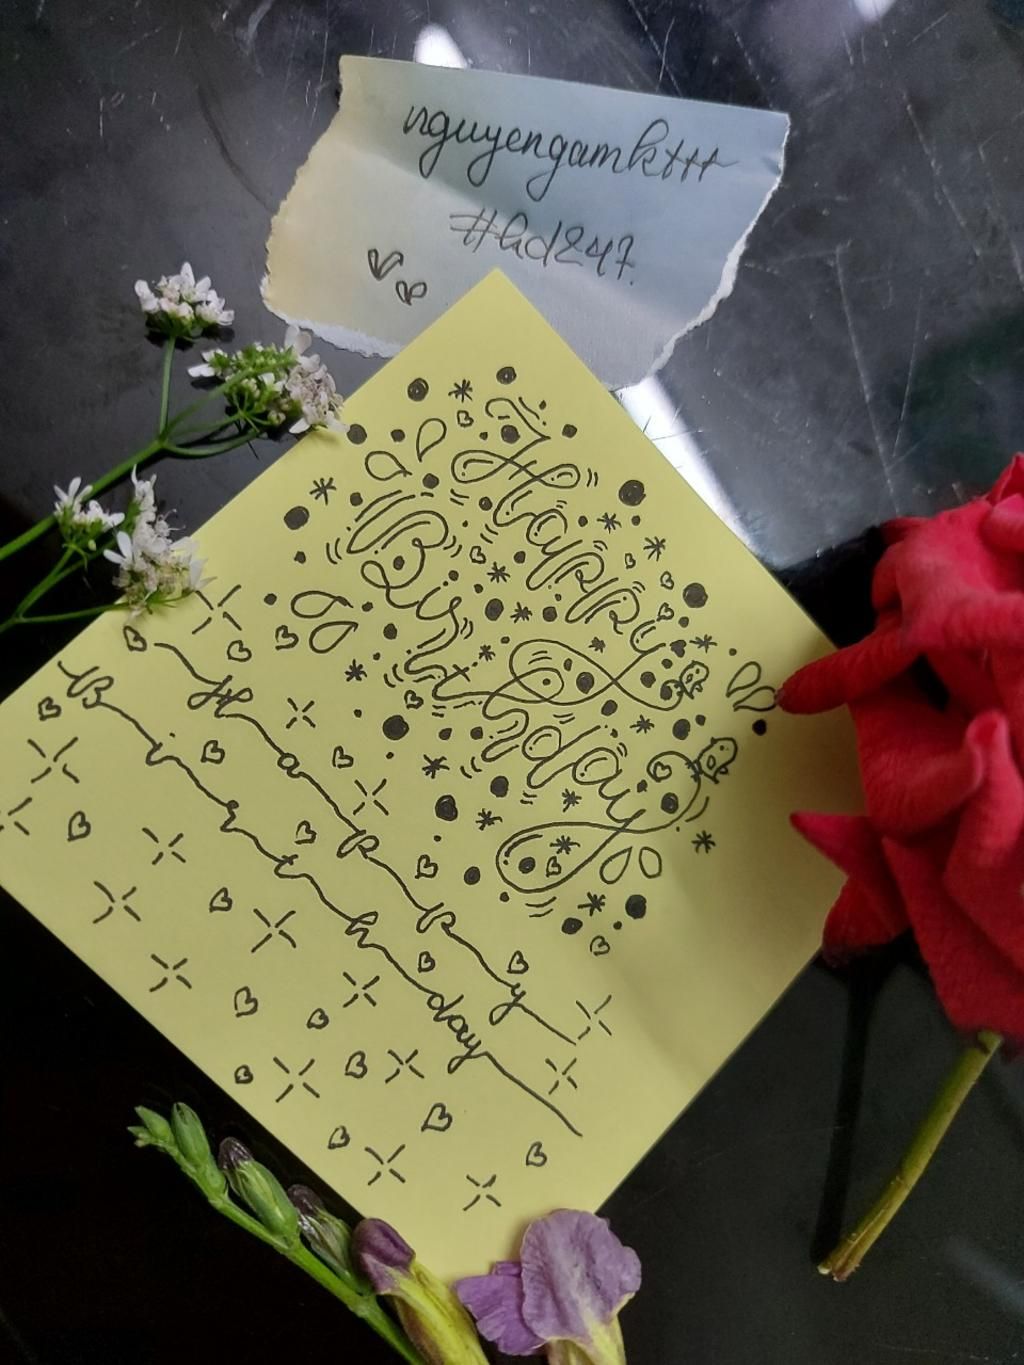 nguyengamkttt
#hd247
Happy
Birthday
Happy
Birthday